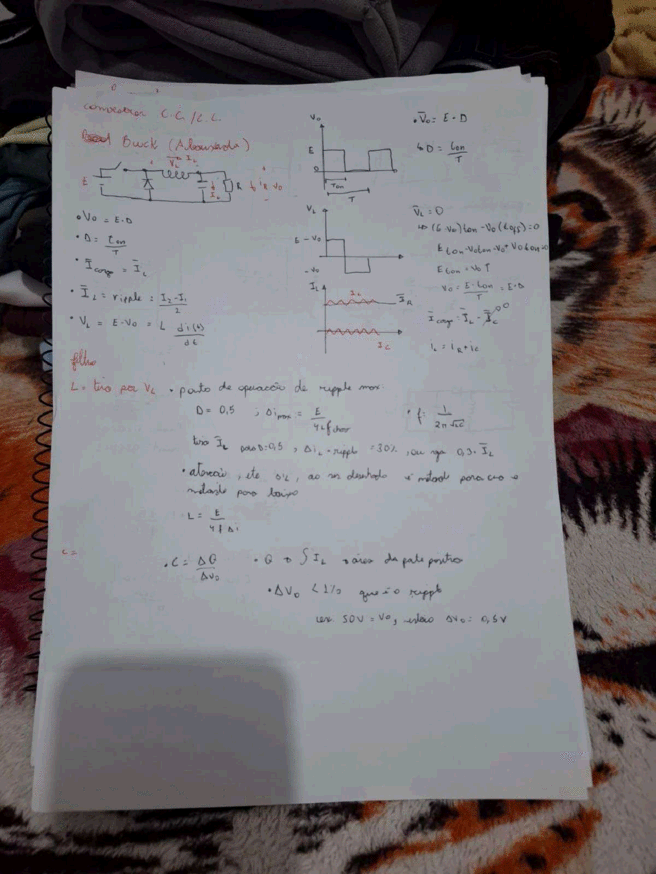 conversor C.C./C.C.
Buck (Abaixador)
V_L I_L
E
I_c
R
V_0
• V_0 = E·D
• D = t_on / T
• Ī_carga = Ī_L
• Ī_L = ripple = (I_2 - I_1) / 2
• V_L = E - V_0 = L di(t) / dt
V_0
E
D
T_on
T
V_L
E - V_0
-V_0
I_L
I_L
Ī_R
I_C
• V̄_0 = E·D
↳ D = t_on / T
V̄_L = 0
(E-V_0) t_on - V_0 (t_off) = 0
E t_on = V_0 T
V_0 = E·t_on / T = E·D
Ī_carga = Ī_L - Ī_C
i_L = i_R + i_C
filtro
L = tiro por V_L • ponto de operação de ripple max:
D = 0,5 ; Δi_max = E / 4Lf
• f = 1 / 2π√LC
tiro Ī_L para D=0,5, Δi_L = ripple = 30%, ou seja 0,3·Ī_L
• atenção, este Δi_L, ao ser é metade para cima e
metade para baixo
L = E / 4 f Δi
C =
• C = ΔQ / ΔV_0
• Q → ∫ I_L → área da parte positiva
• ΔV_0 < 1% que é o ripple
50V = V_0, então ΔV_0 = 0,5V